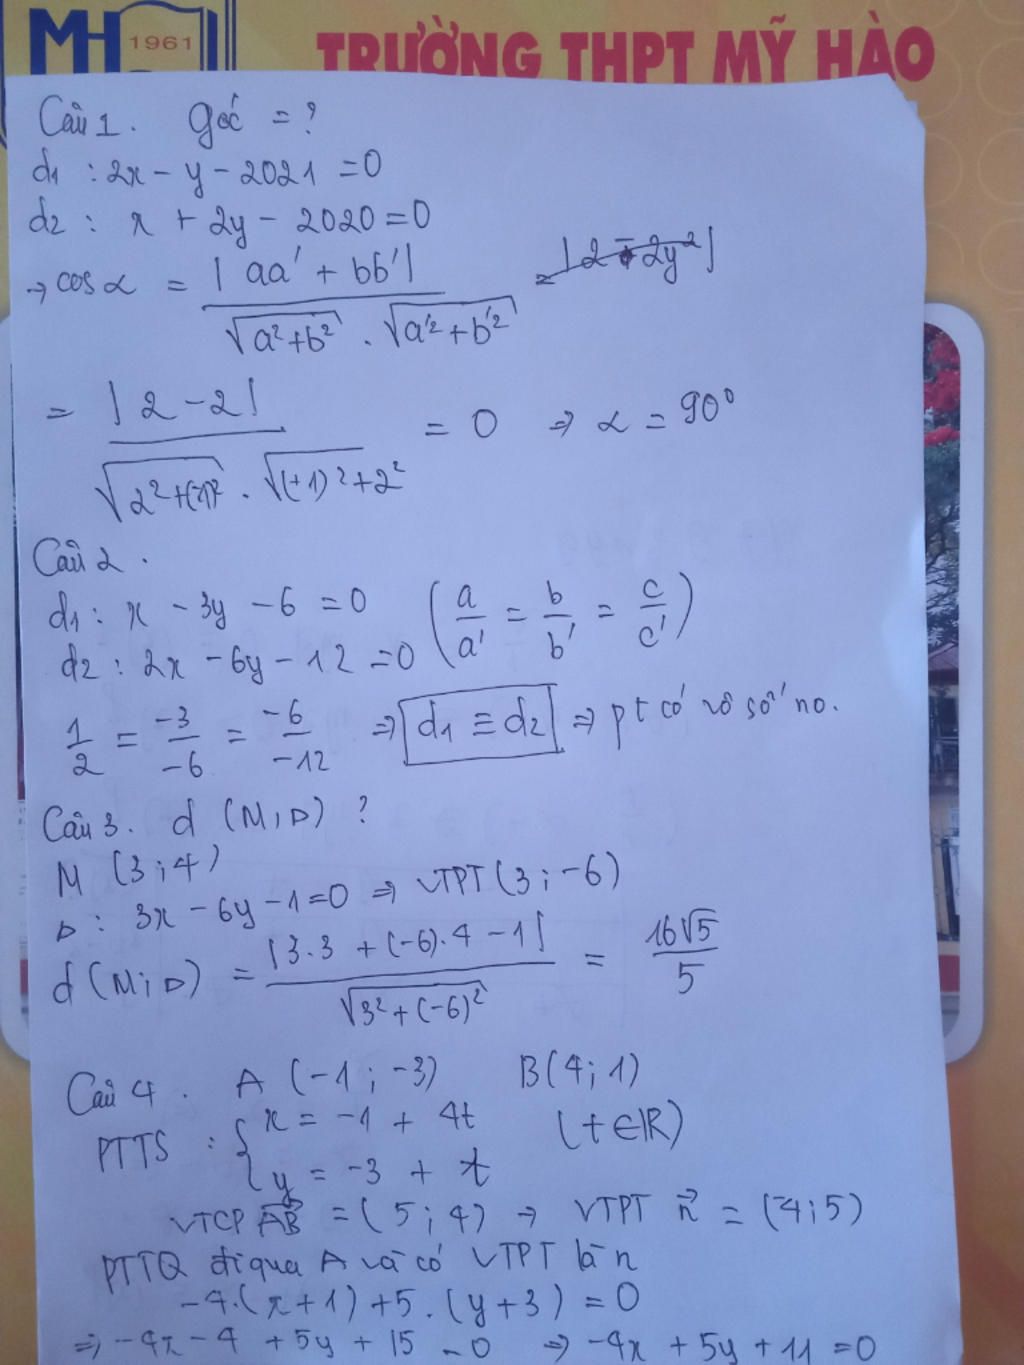 MH 1961
TRƯỜNG THPT MỸ HÀO
Câu 1. góc = ?
d1 : 2x - y - 2021 = 0
d2 : x + 2y - 2020 = 0
→ cos α = |aa' + bb'| / √(a² + b²) . √(a'² + b'²)
= |2 - 2| / √(2² + (-1)²) . √((+1)² + 2²) = 0 ⇒ α = 90°
Câu 2.
d1 : x - 3y - 6 = 0 (a/a' = b/b' = c/c')
d2 : 2x - 6y - 12 = 0
1/2 = -3/-6 = -6/-12 ⇒ d1 ≡ d2 ⇒ pt có vô số no.
Câu 3. d (M, Δ) ?
M (3 ; 4)
Δ : 3x - 6y - 1 = 0 ⇒ VTPT (3 ; -6)
d (M ; Δ) = |3.3 + (-6).4 - 1| / √(3² + (-6)²) = 16√5 / 5
Câu 4. A (-1 ; -3) B (4 ; 1)
PTTS : { x = -1 + 4t (t ∈ R)
y = -3 + t
VTCP AB = (5 ; 4) → VTPT n = (-4 ; 5)
PTTQ đi qua A và có VTPT là n
-4.(x + 1) + 5.(y + 3) = 0
⇒ -4x - 4 + 5y + 15 = 0 ⇒ -4x + 5y + 11 = 0